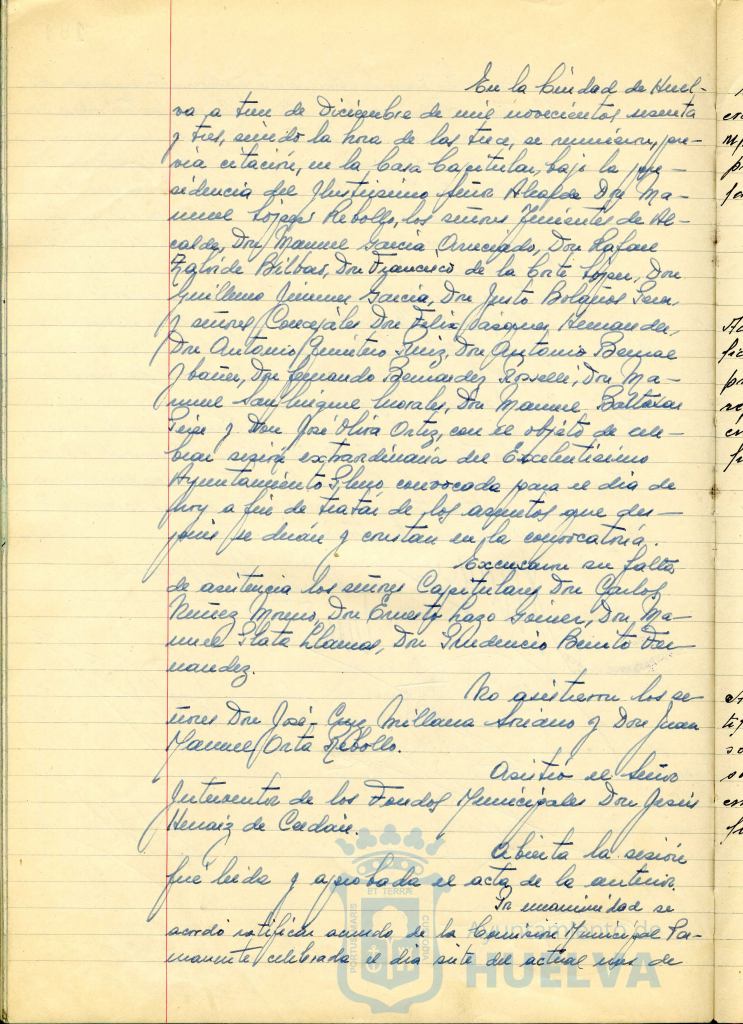 En la Ciudad de Huel-
va a trece de Diciembre de mil novecientos sesenta
y tres, siendo la hora de las trece, se reunieron, pre-
via citación, en la Casa Capitular, bajo la pre-
sidencia del Ilustrísimo Señor Alcalde Don Ma-
nuel López Rebollo, los señores Tenientes de Al-
calde, Don Manuel García Don Rafael
Bilbao, Don Francisco de la Corte López, Don
Guillermo Jiménez García, Don Justo Bolaños
y señores Concejales Don Félix Vázquez Hernández,
Don Antonio Quintero Ruiz, Don Antonio Bernal
Ibáñez, Don Fernando Bernárdez Rosselló, Don Ma-
nuel Sanmiguel Morales, Don Manuel Baltasar
y Don José Oliva Ortiz, con el objeto de cele-
brar sesión extraordinaria del Excelentísimo
Ayuntamiento Pleno convocada para el día de
hoy a fin de tratar de los asuntos que des-
pués se dirán y constan en la convocatoria.
Excusaron su falta
de asistencia los señores Capitulares Don Carlos
Núñez Moreno, Don Ernesto Lazo Don Ma-
nuel Plata Llamas, Don Prudencio Benito Fer-
nandez.
No asistieron los se-
ñores Don José-Cruz Millana Soriano y Don Juan
Manuel Orta Rebollo.
Asistió el Señor
Interventor de los Fondos Municipales Don Jesús
Henaiz de
Abierta la sesión
fué leida y aprobada el acta de la anterior.
Por unanimidad se
acordó ratificar acuerdo de la Comisión Municipal Per-
manente celebrada el dia siete del actual mes de
PORTUS MARIS
ET TERRAE
CUSTODIA
Ayuntamiento de
HUELVA